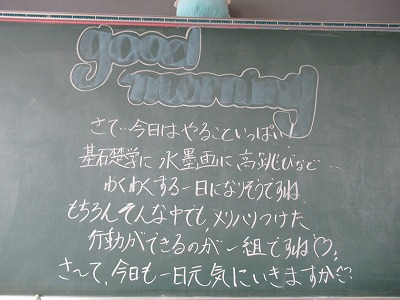 good
morning
さて…今日はやることいっぱい!
基石楚学に水墨画に高跳びなど…
わくわくする一日になりそうですね
もちろんそんな中でも、メリハリつけた
行動ができるのが一組ですね♡!
さ〜て、今日も一日元気にいきますか!?